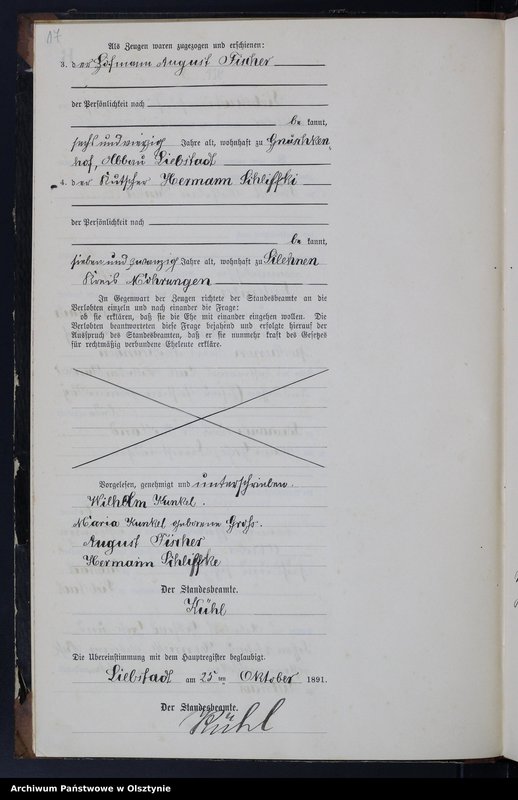 17
Als Zeugen waren zugezogen und erschienen:
3. der Hofmann August Fischer
der Persönlichkeit nach
be kannt,
sechsundvierzig Jahre alt, wohnhaft zu Gnuschken
hof, Abbau Liebstadt
4. der Kutscher Hermann Schliffki
der Persönlichkeit nach
be kannt,
sieben und zwanzig Jahre alt, wohnhaft zu
Kreis Mohrungen
In Gegenwart der Zeugen richtete der Standesbeamte an die
Verlobten einzeln und nach einander die Frage:
ob sie erklären, daß sie die Ehe mit einander eingehen wollen. Die
Verlobten beantworteten diese Frage bejahend und erfolgte hierauf der
Ausspruch des Standesbeamten, daß er sie nunmehr kraft des Gesetzes
für rechtmäßig verbundene Eheleute erkläre.
Vorgelesen, genehmigt und unterschrieben.
Wilhelm Kunkel.
Maria Kunkel geborene Groß.
August Fischer
Hermann Schliffke
Der Standesbeamte.
Kühl
Die Übereinstimmung mit dem Hauptregister beglaubigt.
Liebstadt am 25 ten Oktober 1891.
Der Standesbeamte.
Kühl
Archiwum Państwowe w Olsztynie